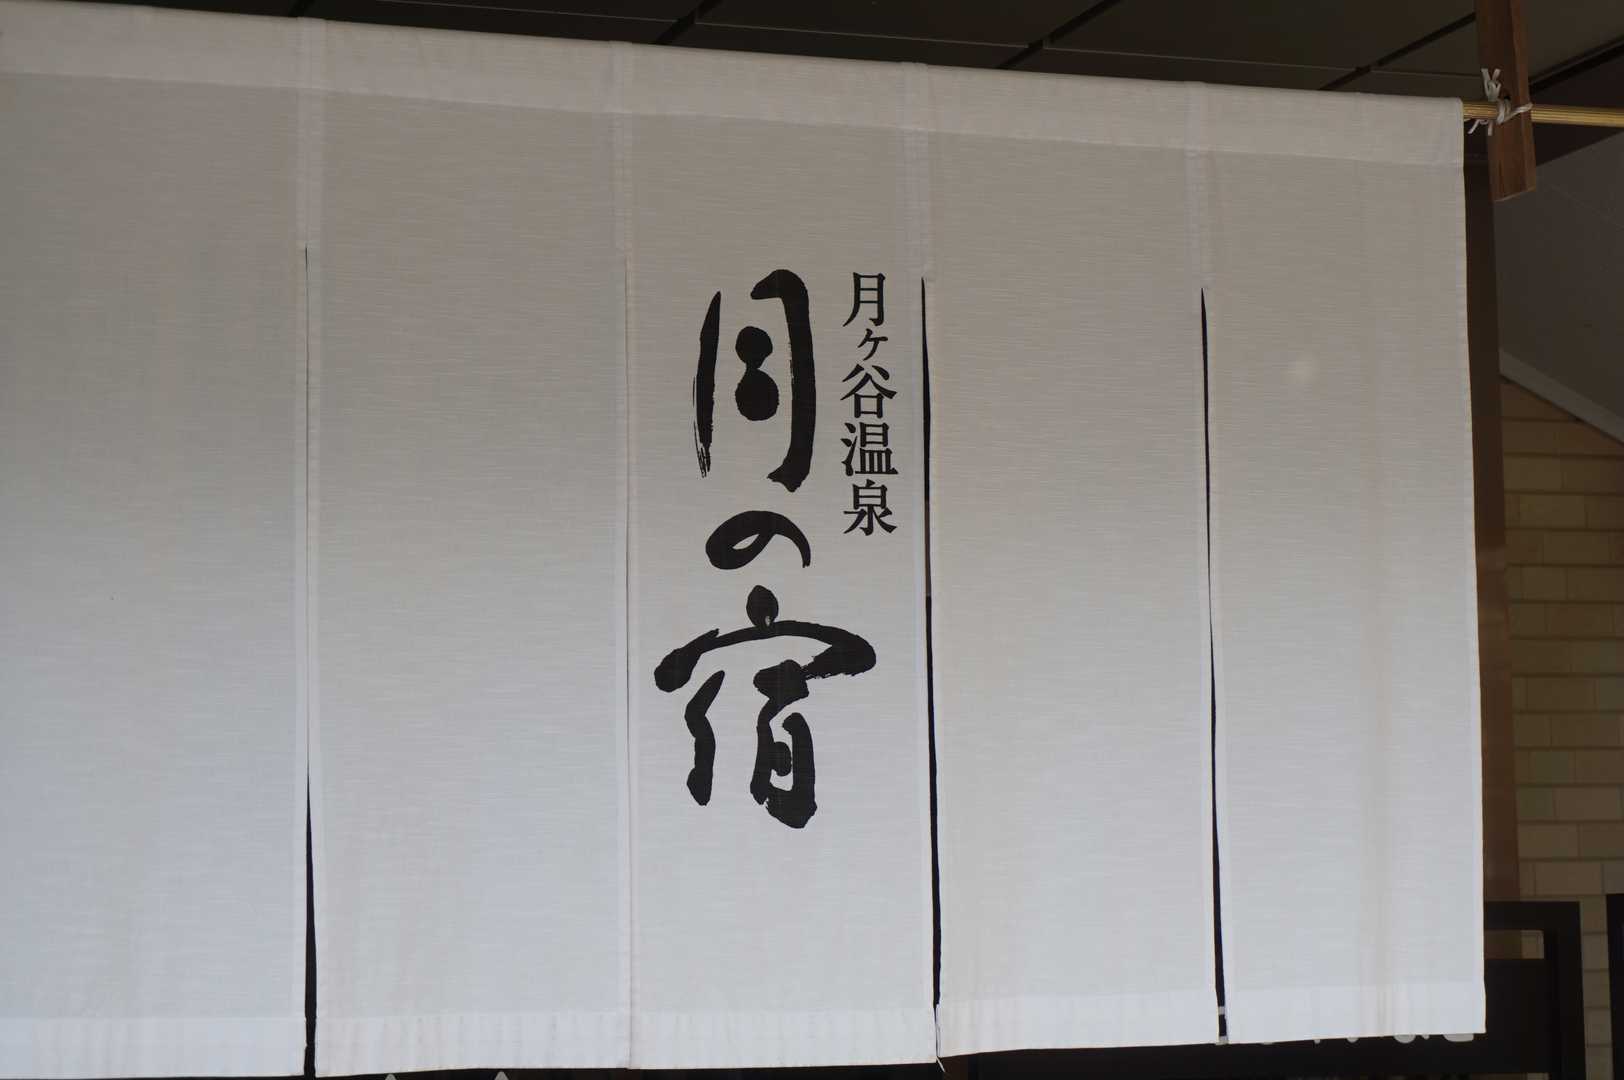 月ヶ谷温泉
月の宿